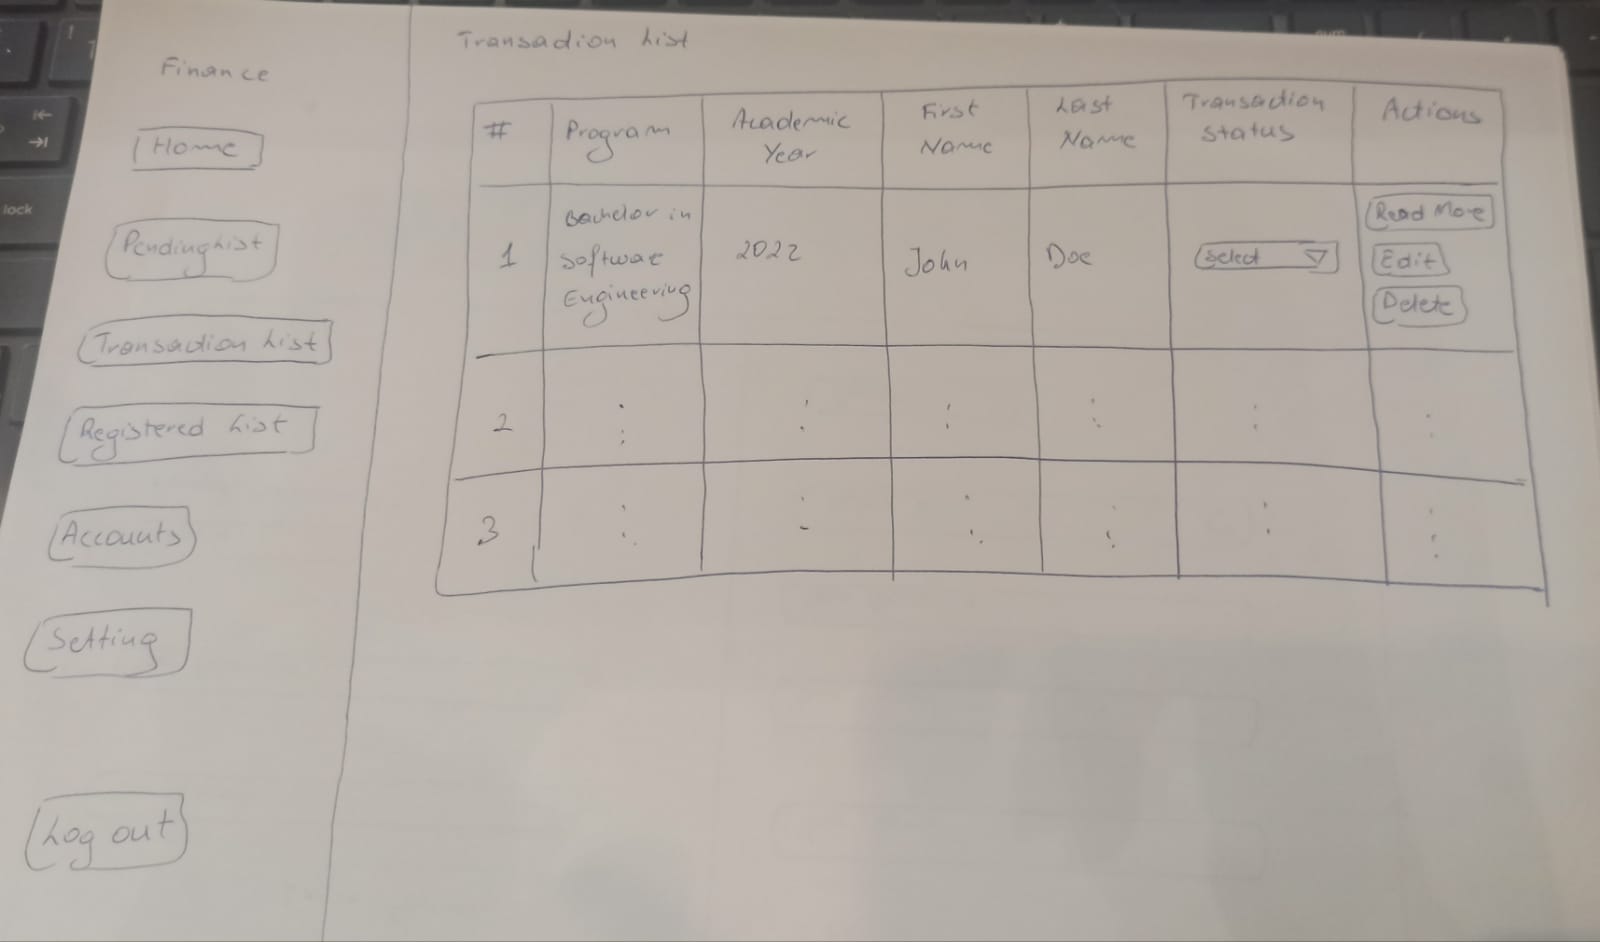 Finance
Home
Pending List
Transaction List
Registered List
Accounts
Setting
Log out
Transaction List
# Program Academic Year First Name Last Name Transaction Status Actions
1 Bachelor in Software Engineering 2022 John Doe Select Read More
Edit
Delete
2
3
lock